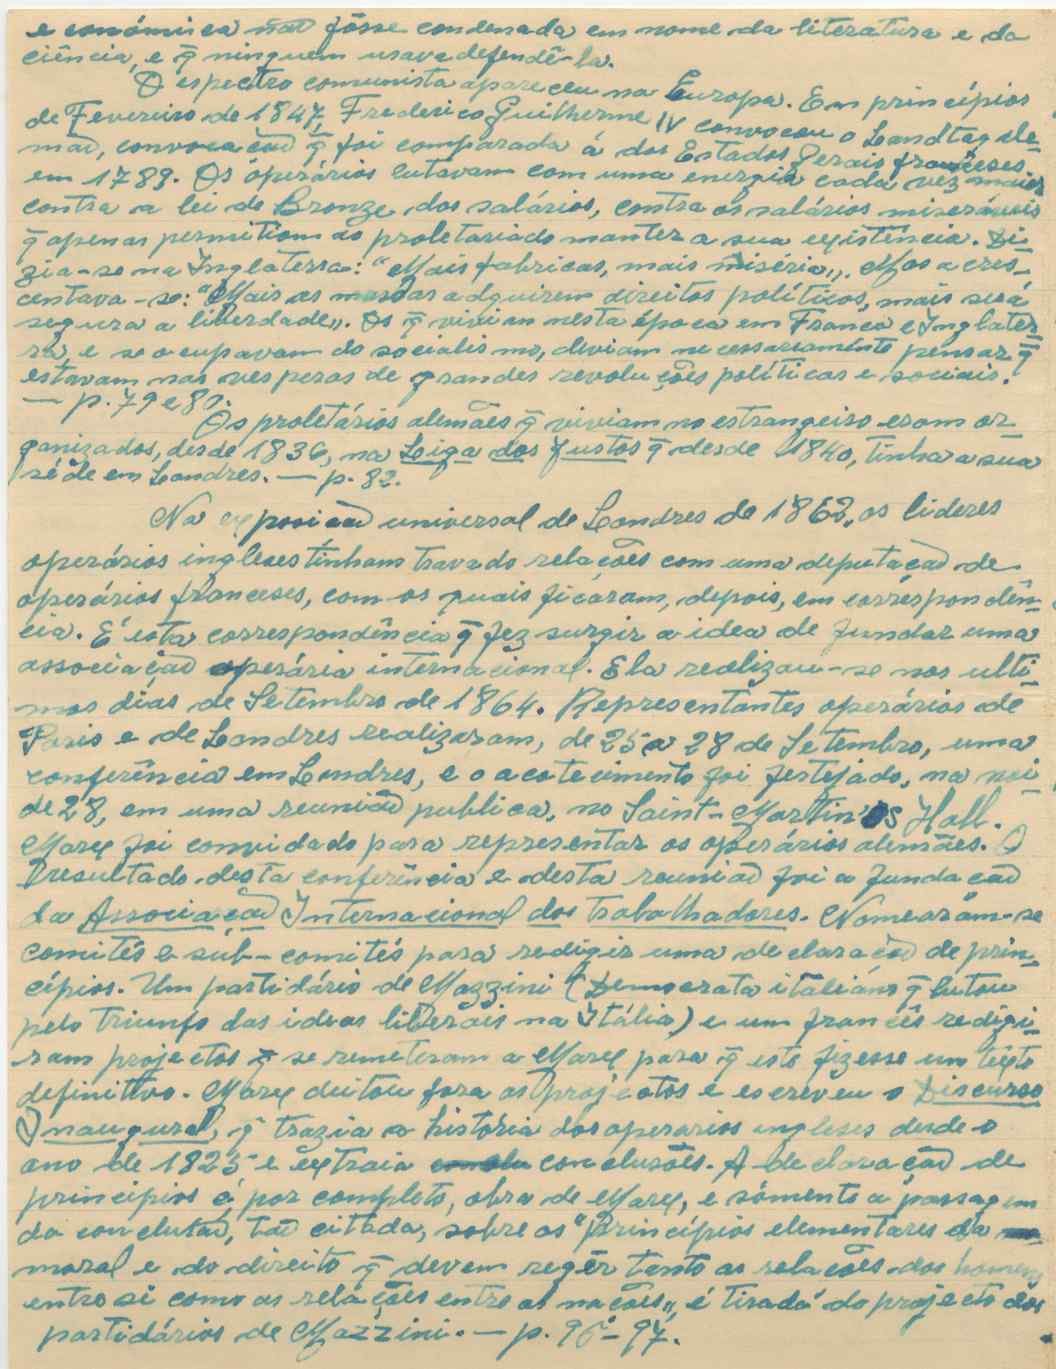 e económica não fôsse condenada em nome da literatura e da
ciência, e q̃ ninguem usava defendê-la.
O espectro comunista apareceu na Europa. Em princípios
de Fevereiro de 1847, Frederico Guilherme IV convocou o Landtag ale-
mão, convocação q̃ foi comparada á dos Estados Gerais franceses,
em 1789. Os óperários lutavam com uma energia cada vez maior
contra a lei de Bronze dos salários, contra os salários miseráveis
q̃ apenas permitiam ao proletariado manter a sua existência. Di-
zia-se na Inglaterra: "Mais fabricas, mais miséria". Mas acres-
centava-se: "Mais as massas adquirem direitos políticos, mais será
segura a liberdade". Os q̃ viviam nesta época em França e Inglater-
ra, e se ocupavam do socialismo, deviam necessariamente pensar q̃
estavam nas vesperas de grandes revoluções políticas e sociais.
— p. 79 e 80.
Os proletários alemães q̃ viviam no estrangeiro eram or-
ganizados, desde 1836, na Liga dos Justos q̃ desde 1840, tinha a sua
séde em Londres. — p. 82.
Na exposição universal de Londres de 1862, os lideres
operários ingleses tinham travado relações com uma deputação de
operários franceses, com os quais ficaram, depois, em correspondên-
cia. É esta correspondência q̃ fez surgir a idea de fundar uma
associação operária internacional. Ela realizou-se nos ulti-
mos dias de Setembro de 1864. Representantes operários de
Paris e de Londres realizaram, de 25 a 28 de Setembro, uma
conferência em Londres, e o acotecimento foi festejado, na noi-
de 28, em uma reunião publica, no Saint-Martin's Hall.
Marx foi convidado para representar os operários alemães. O
resultado desta conferência e desta reunião foi a fundação
da Associação Internacional dos trabalhadores. Nomearam-se
comités e sub-comités para redigir uma declaração de prin-
cípios. Um partidário de Mazzini (Democrata italiano q̃ lutou
pelo triunfo das ideas liberais na Itália) e um francês redigi-
ram projectos q̃ se remeteram a Marx para q̃ este fizesse um texto
definitivo. Marx deitou fora os projectos e escreveu o Discurso
Inaugural, q̃ trazia a história dos operarios ingleses desde o
ano de 1825 e extraia conclusões. A declaração de
princípios é, por completo, obra de Marx, e sómente a passagem
da conclusão, tão citada, sobre os "Princípios elementares da
moral e do direito q̃ devem regêr tanto as relações dos homens
entre si como as relações entre as nações", é tirada do projecto dos
partidários de Mazzini. — p. 96-97.